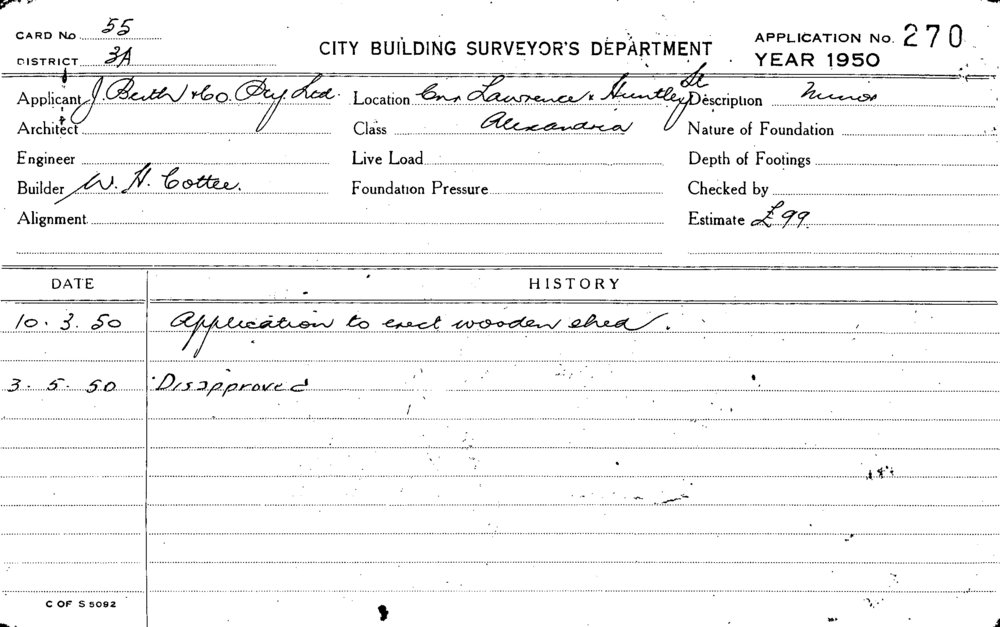 CARD No 55
DISTRICT 3A
CITY BUILDING SURVEYOR'S DEPARTMENT
APPLICATION No. 270
YEAR 1950
Applicant J. & Co. Pty Ltd. Location Cnr Lawrence & Huntley St Description Minor
Architect Class Alexandria Nature of Foundation
Engineer Live Load Depth of Footings
Builder W. H. Cottee. Foundation Pressure Checked by
Alignment Estimate £99
DATE HISTORY
10. 3. 50 Application to erect wooden shed.
3. 5. 50 Disapproved
C OF S 5092